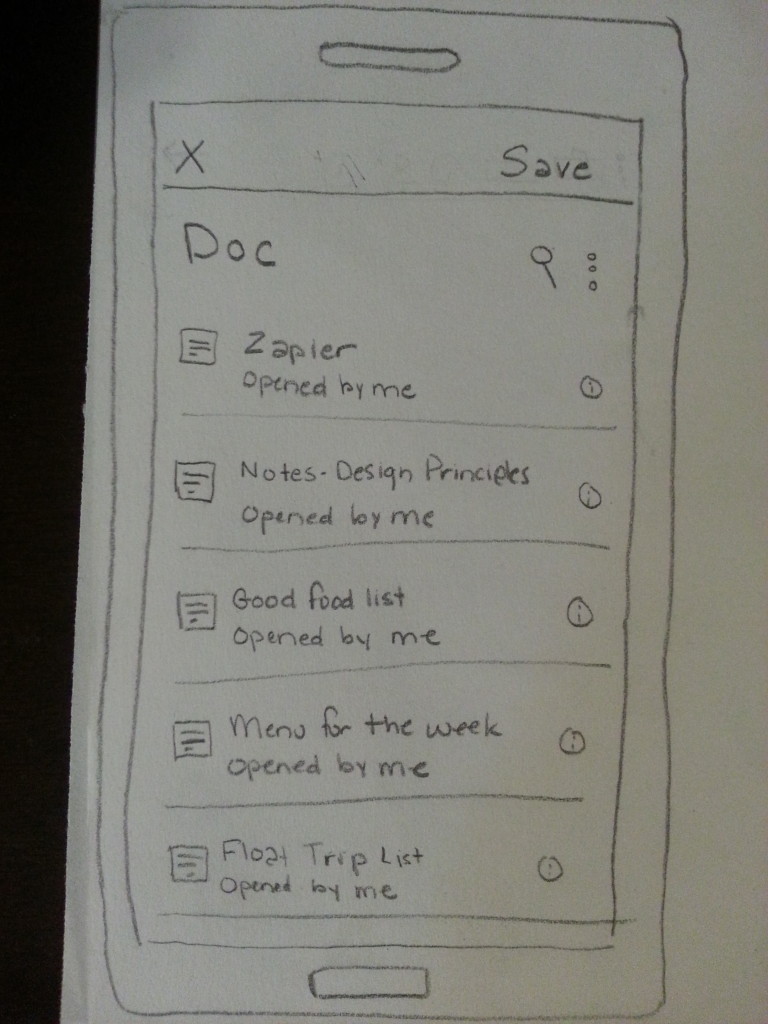 X Save
Doc
Zapier
Opened by me
Notes - Design Principles
Opened by me
Good food list
Opened by me
Menu for the week
Opened by me
Float Trip List
Opened by me